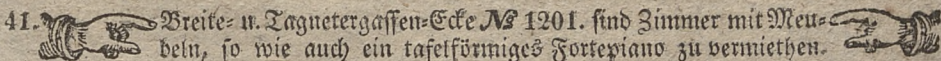 41. Breite- u. Tagnetergassen-Ecke No 1201. sind Zimmer mit Meu-
beln, so wie auch ein tafelförmiges Fortepiano zu vermiethen.